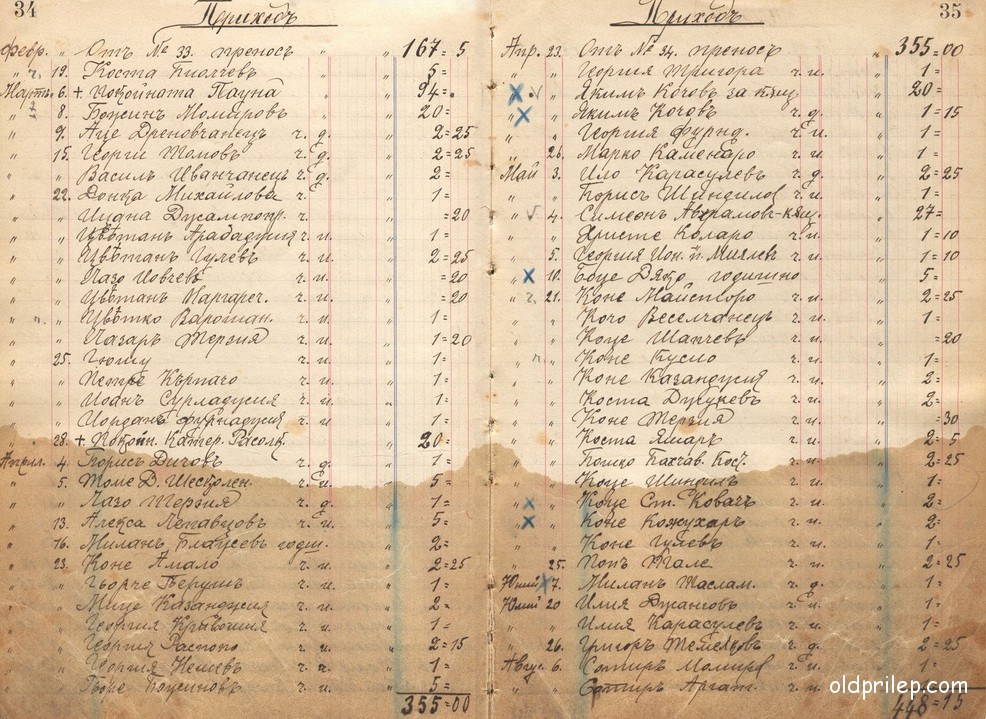 34 Приходъ
Февр. " Отъ № 33. преносъ " " 167=5
" 19. Коста " 5=
Мартъ 6. + Покойната Пауна " 94=
" 8. Божинъ Момировъ " 20=
" 9. Аце Дреновчанецъ г. д. " 2=25
" 15. Георги Томовъ г. д. " 2=25
" " Василъ Иванчанецъ г. д. " 2=
" 22. Донка Михайлова г. " 1=
" " =20
" " Цвѣтанъ Арабаджия г. и. " 1=
" " Цвѣтанъ Гулевъ г. и. " 2=25
" " Лазо Иовчевъ " =20
" " Цвѣтанъ Маргарет. г. и. " =20
" " Цвѣтко Варошан. г. и. " 1=
" " Лазаръ Терзия г. и. " 1=20
" 25. г. и. " 1=
" " Петре Кърпачо г. и. " 1=
" " Иованъ Сурладжия г. и. " 1=
" " Иорданъ Фурнаджия г. и. " 1=
" 28. + Покойн. Катер. " 20=
Април. 4. Борисъ Дичовъ г. д. " 1=
" 5. Томе Д. г. и. " 5=
" " Лазо Терзия г. д. " 1=
" 13. Алекса Лепавцовъ г. и. " 5=
" 16. Миланъ годи. " 2=
" 23. Коне Амало г. и. " 2=25
" " Гьорче Беришъ г. и. " 1=
" " Мице Казанджия г. и. " 2=
" " Георгия г. и. " 1=
" " Георгия Распопо г. и. " 2=15
" " Георгия Нешевъ г. и. " 1=
" " Божиновъ г. и. " 5=
355=00
Приходъ 35
Апр. 23. Отъ № 34. преносъ " 355=00
" " Георгия Тригора г. и. " 1=
" " Якимъ Кочовъ за " 20=
" " Якимъ Кочовъ г. д. " 1=15
" " Георгия Фурнд. г. и. " 1=
" 26. Марко Каменаро г. и. " 1=
Май 3. Ило Карасулевъ г. д. " 2=25
" " Борисъ Шиндилов г. и. " 1=
" 4. Симеонъ Аврамов " 27=
" " Христе Коларо г. и. " 1=10
" 5. Георгия Ион. г. и. " 1=10
" 10. Боце Дяко годишно " 5=
" 21. Коне Майсторо г. и. " 2=25
" " Кочо Веселчанецъ г. и. " 1=
" " Коце Шапчевъ г. и. =20
" " Коне Кусло г. и. " 1=
" " Коне Казанджия г. и. " 2=
" " Коста г. и. " 2=
" " Коне Терзия г. и. =30
" " Коста г. и. " 2=5
" " Бошко г. и. " 2=25
" " Коце Шиндилъ г. и. " 1=
" " Коце Ст. Ковачъ г. и. " 2=
" " Коне Кожухаръ г. и. " 2=
" " Коне Гулевъ г. и. " 1=
" 25. Попъ Тале г. и. " 2=25
Юний 7. Миланъ Маслам. г. д. " 1=
Юний 20 Илия Джамовъ г. и. " 1=
" " Илия Карасулевъ г. и. " 1=
" 26. Григоръ Темелковъ г. д. " 2=25
Авгус. 6. Сотиръ г. и. " 1=
" " Сотиръ г. и.
448=15
oldprilep.com